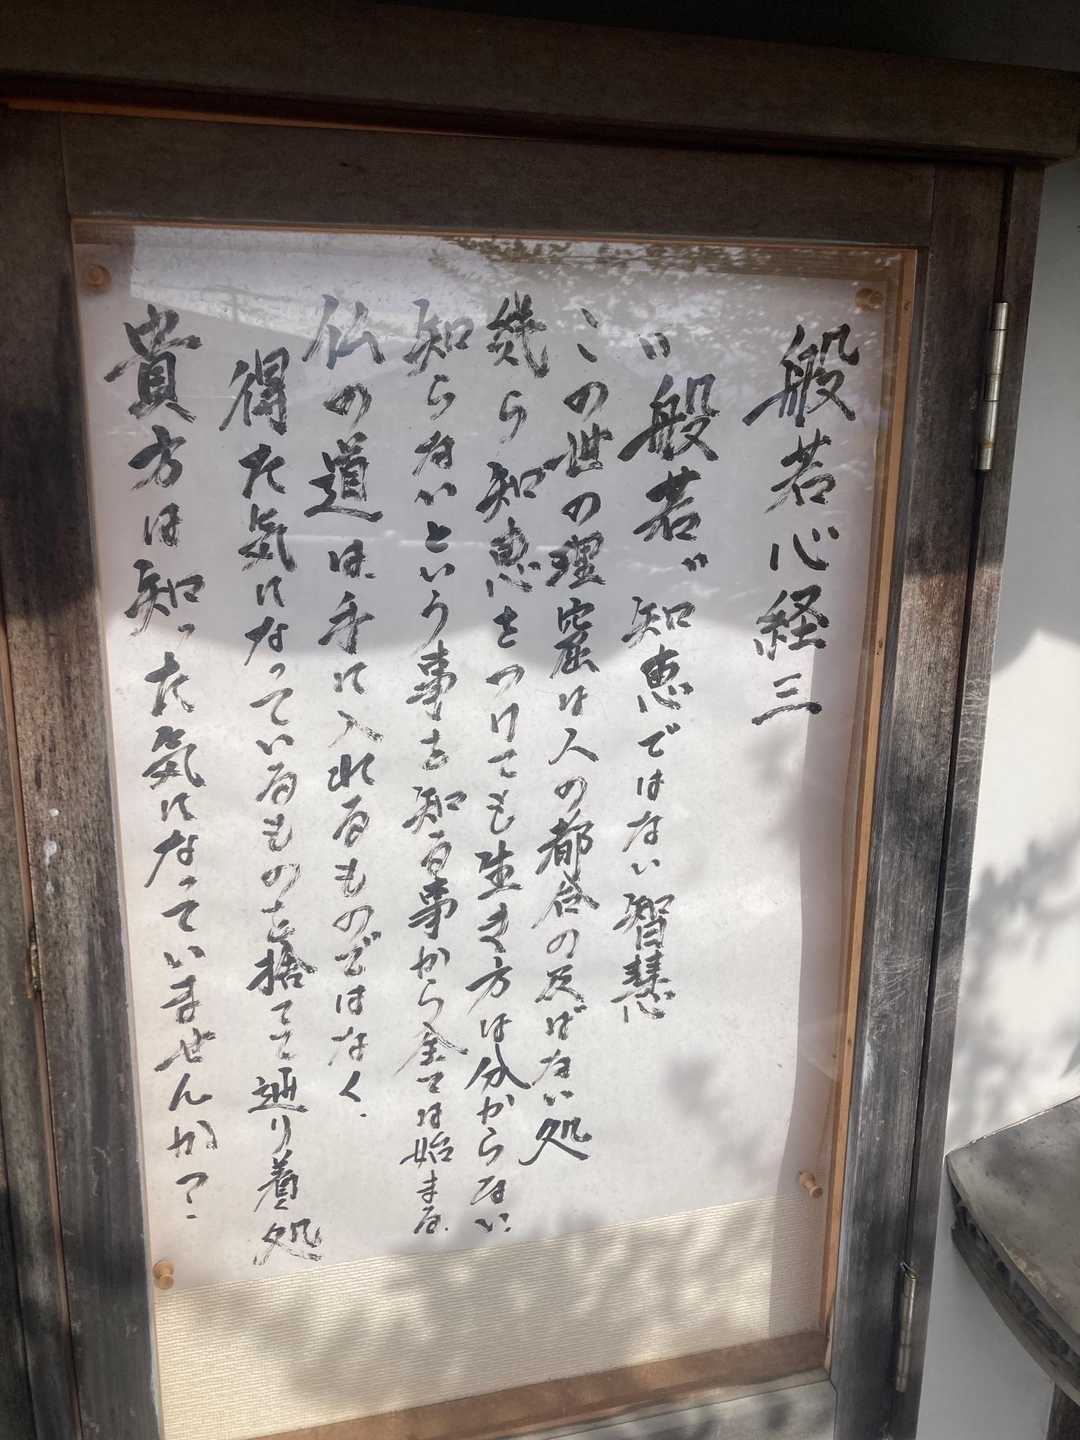 般若心経三
〝般若〞知恵ではない智慧
この世の理窟は人の都合の及ばない処
幾ら知恵をつけても生き方は分からない
知らないという事を知る事から全ては始まる
仏の道は手に入れるものではなく、
得た気になっているものを捨てて辿り着く処
貴方は知った気になっていませんか?